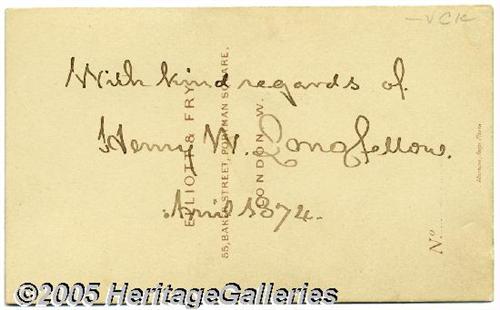 —VCK
With kind regards of
Henry W. Longfellow.
April 1874.
ELLIOTT & FRY
55, BAKER STREET, PORTMAN SQUARE,
LONDON. W.
No
©2005 HeritageGalleries